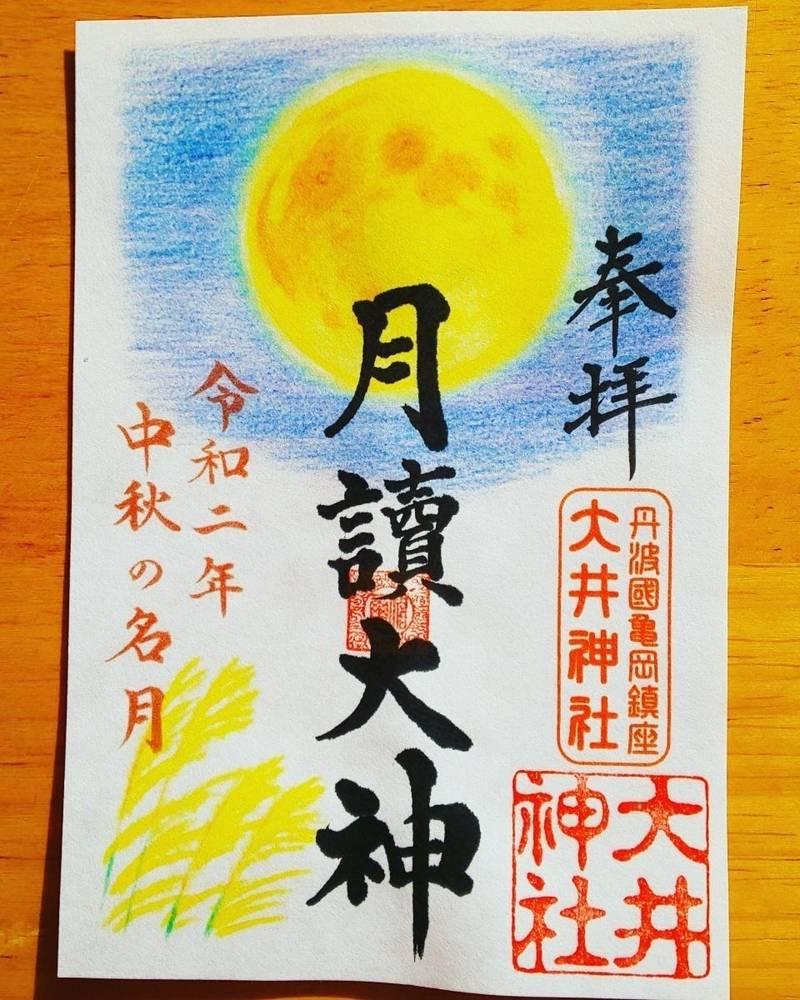 奉拝
丹波國亀岡鎮座
大井神社
大井
神社
月讀大神
令和二年
中秋の名月